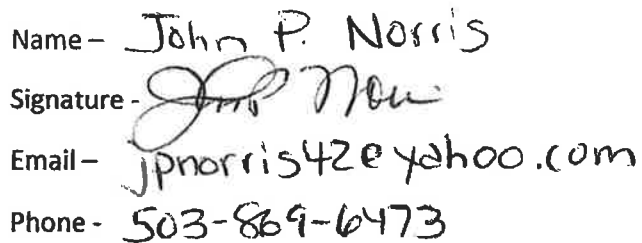 Name – John P. Norris
Signature -
Email – jpnorris42@yahoo.com
Phone - 503-869-6473